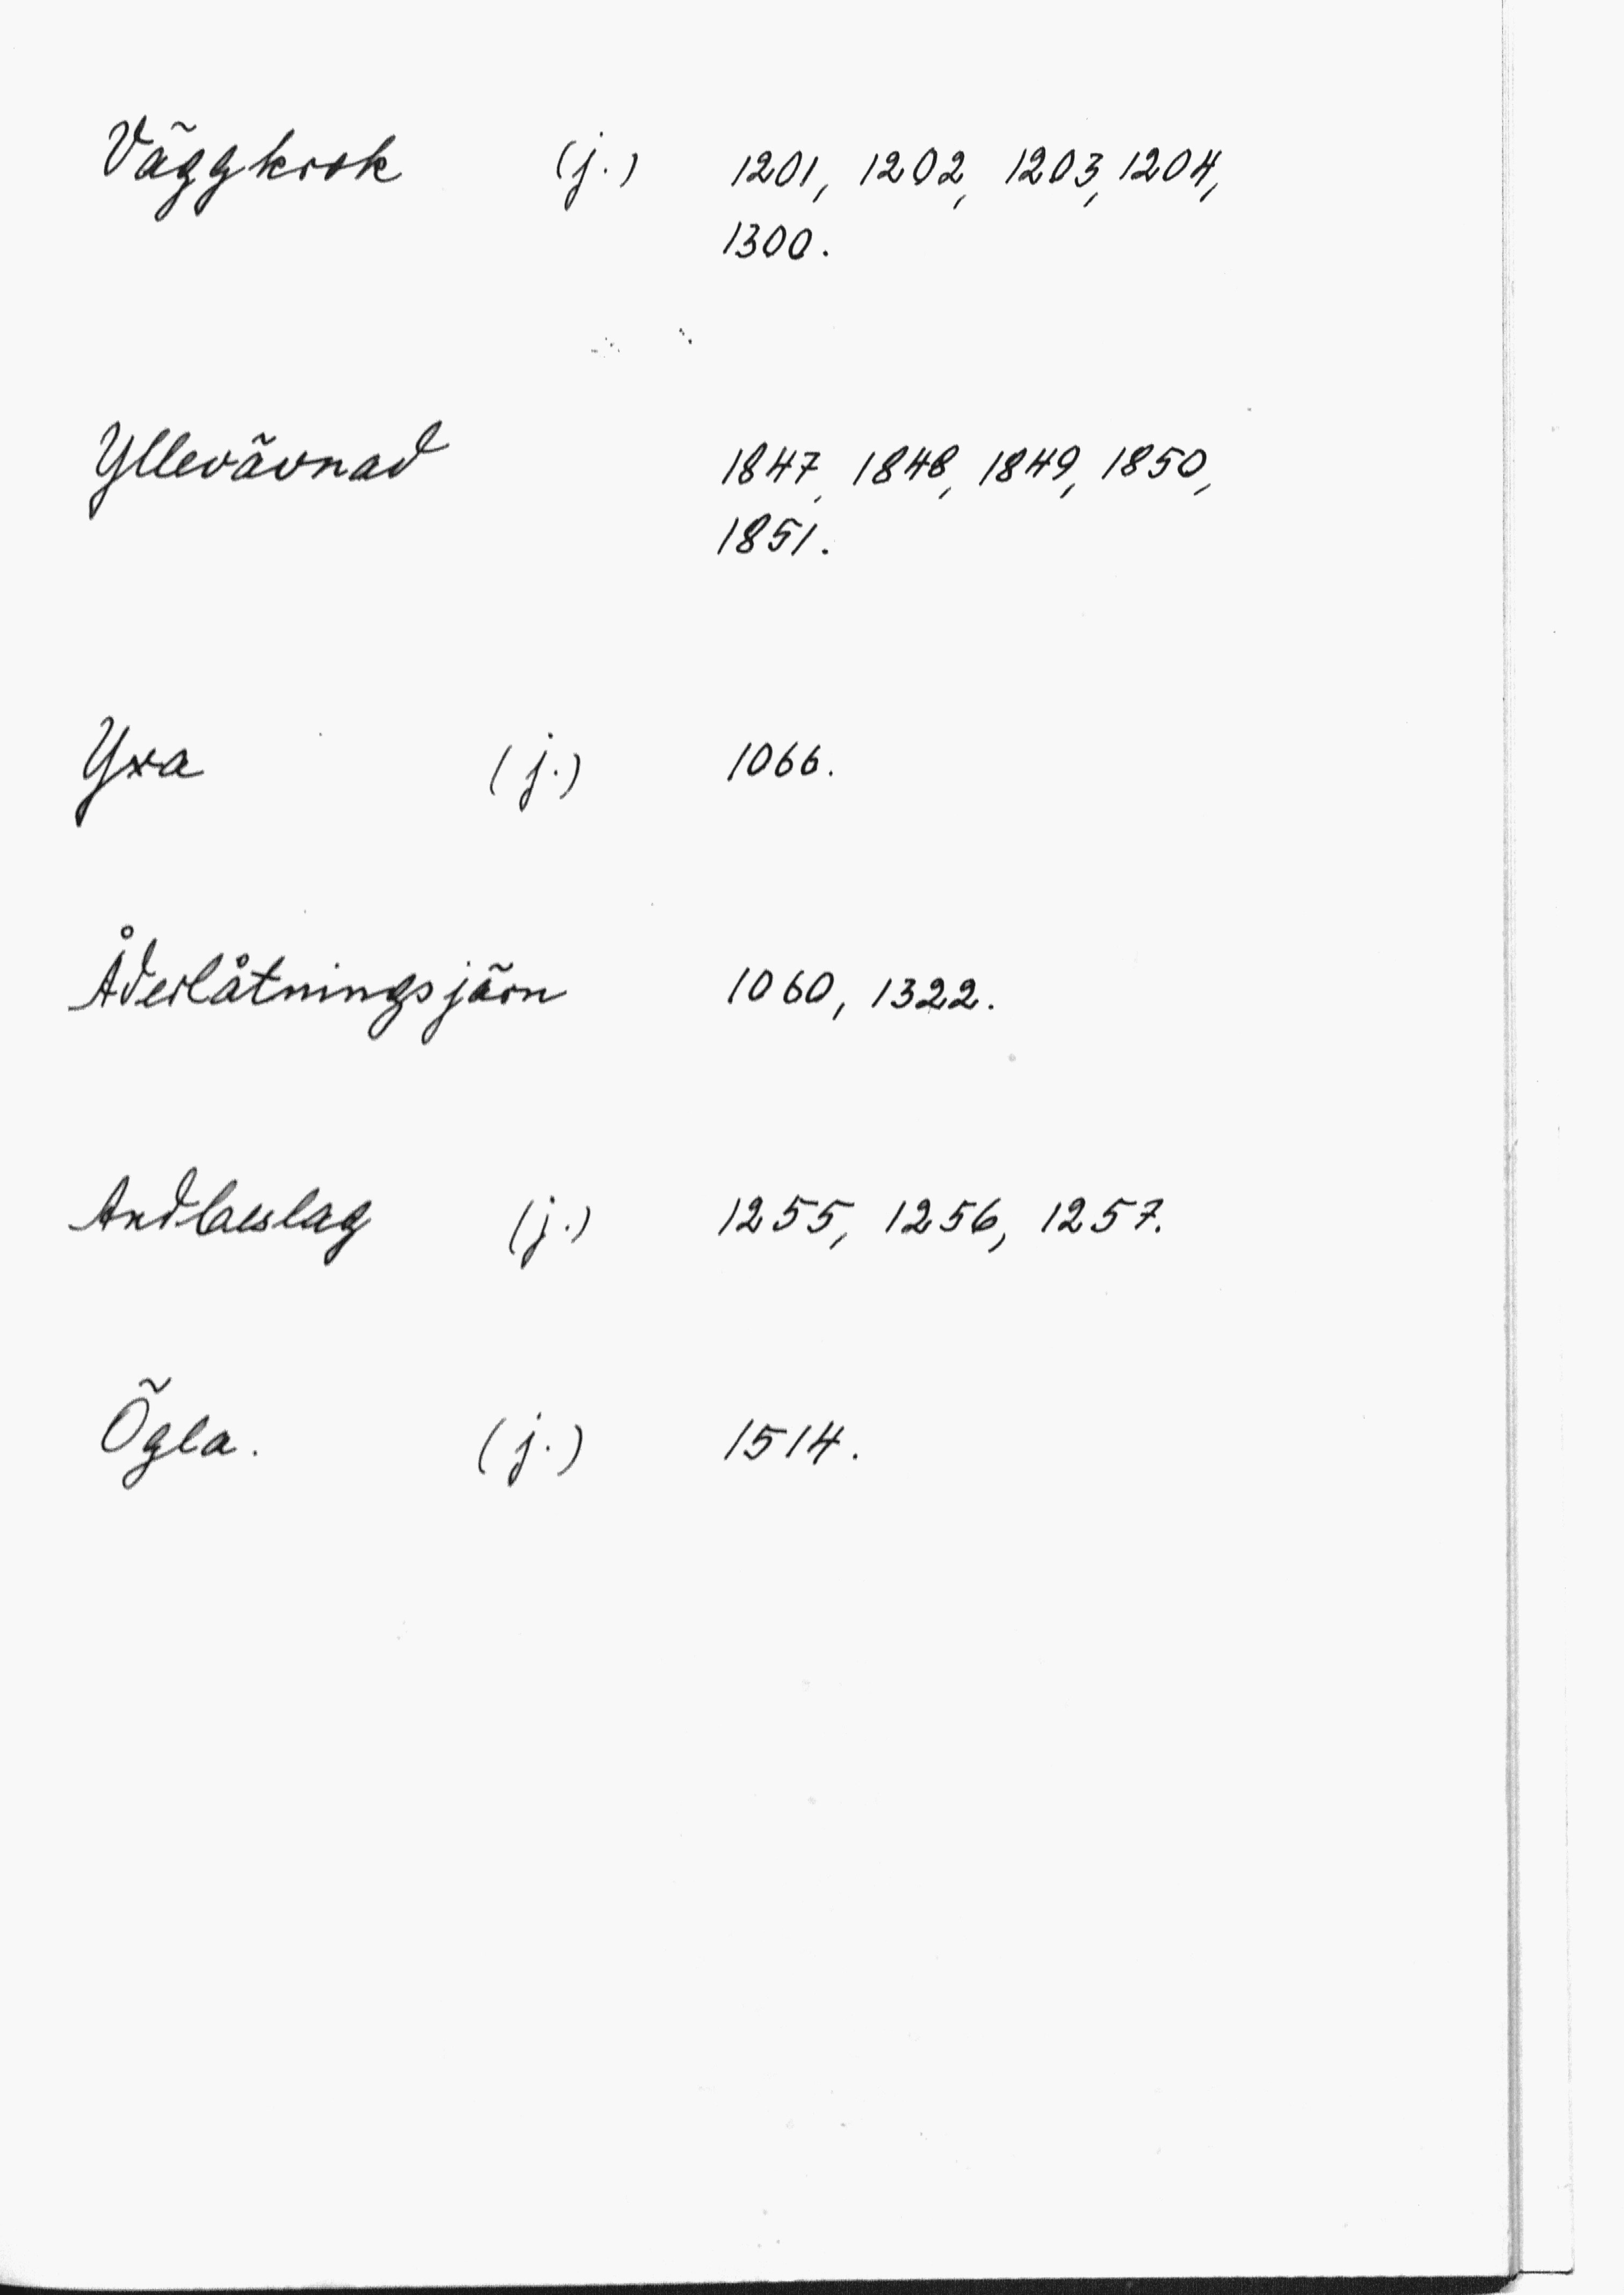 Väggkrok (j.) 1201, 1202, 1203, 1204,
1300.
Yllevävnad 1847, 1848, 1849, 1850,
1851.
Yxa (j.) 1066.
Åderlåtningsjärn 1060, 1322.
Andbeslag (j.) 1255, 1256, 1257.
Ögla. (j.) 1514.